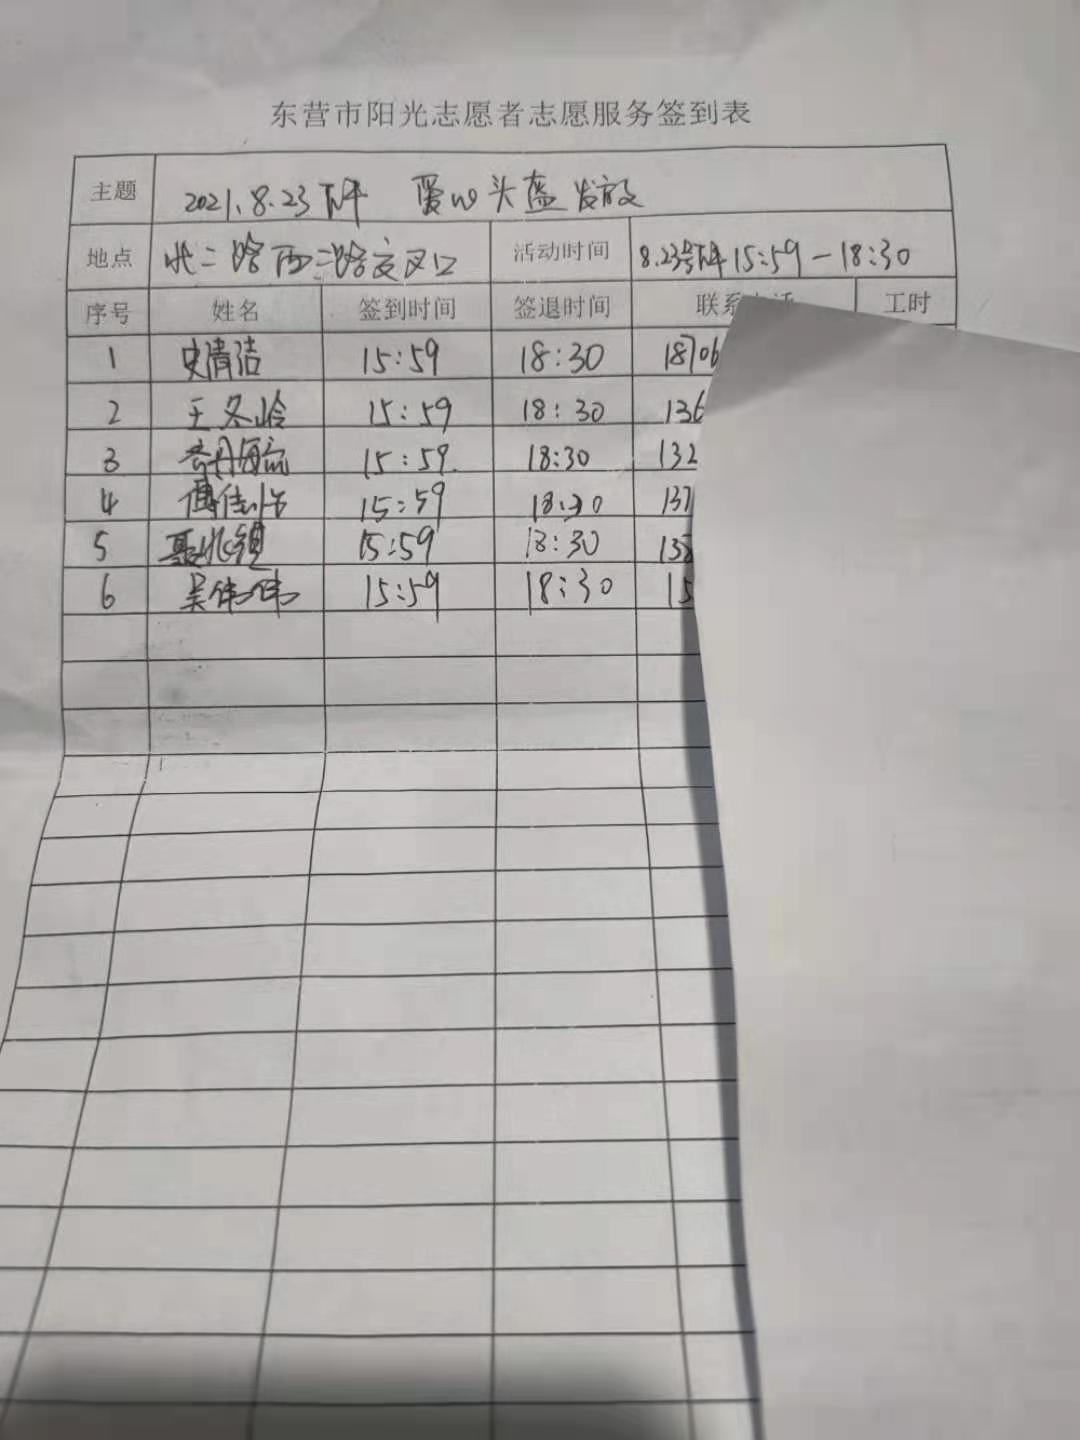 东营市阳光志愿者志愿服务签到表
主题 2021.8.23下午 爱心头盔发放
地点 北二路西二路交叉口 活动时间 8.23号下午15:59-18:30
序号 姓名 签到时间 签退时间 联系 工时
1 史清洁 15:59 18:30 18706
2 王冬岭 15:59 18:30 136
3 15:59 18:30 132
4 15:59 18:30 137
5 聂兆镇 15:59 18:30 138
6 吴伟伟 15:59 18:30 15